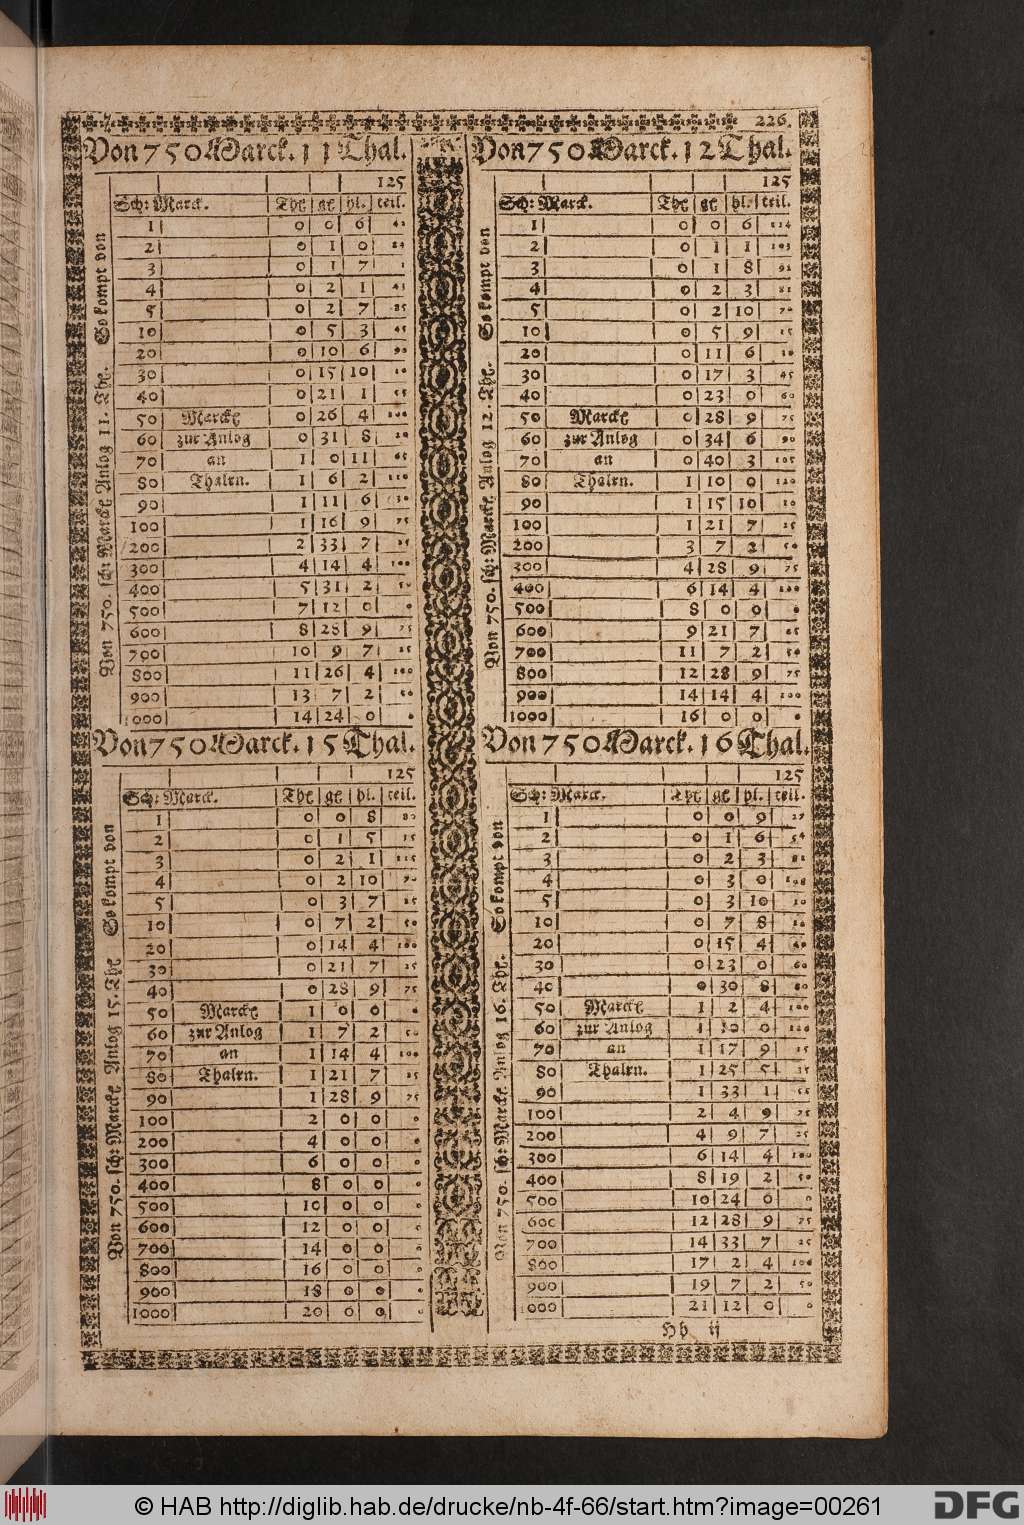 226.
Von 750 Marck. 11 Thal.
125
Sch: Marck. Thl gl hl. teil.
1 0 0 6 42
2 0 1 0 84
3 0 1 7 1
4 0 2 1 43
5 0 2 7 85
10 0 5 3 45
20 0 10 6 90
30 0 15 10 10
40 0 21 1 55
50 Marckl 0 26 4 100
60 zur Anlog 0 31 8 20
70 an 1 0 11 65
80 Thalrn. 1 6 2 110
90 1 11 6 30
100 1 16 9 75
200 2 33 7 25
300 4 14 4 100
400 5 31 2 50
500 7 12 0 0
600 8 28 9 75
700 10 9 7 25
800 11 26 4 100
900 13 7 2 50
1000 14 24 0 0
Von 750. sch: Marckl Anlog 11. Thl. So kompt von
Von 750 Marck. 12 Thal.
125
Sch: Marck. Thl gl hl. teil.
1 0 0 6 114
2 0 1 1 103
3 0 1 8 92
4 0 2 3 81
5 0 2 10 70
10 0 5 9 15
20 0 11 6 30
30 0 17 3 45
40 0 23 0 60
50 Marckl 0 28 9 75
60 zur Anlog 0 34 6 90
70 an 0 40 3 105
80 Thalrn. 1 10 0 120
90 1 15 10 10
100 1 21 7 25
200 3 7 2 50
300 4 28 9 75
400 6 14 4 100
500 8 0 0 0
600 9 21 7 25
700 11 7 2 50
800 12 28 9 75
900 14 14 4 100
1000 16 0 0 0
Von 750. sch: Marckl Anlog 12. Thl. So kompt von
Von 750 Marck. 15 Thal.
125
Sch: Marck. Thl gl hl. teil.
1 0 0 8 80
2 0 1 5 35
3 0 2 1 115
4 0 2 10 70
5 0 3 7 25
10 0 7 2 50
20 0 14 4 100
30 0 21 7 25
40 0 28 9 75
50 Marckl 1 0 0 0
60 zur Anlog 1 7 2 50
70 an 1 14 4 100
80 Thalrn. 1 21 7 25
90 1 28 9 75
100 2 0 0 0
200 4 0 0 0
300 6 0 0 0
400 8 0 0 0
500 10 0 0 0
600 12 0 0 0
700 14 0 0 0
800 16 0 0 0
900 18 0 0 0
1000 20 0 0 0
Von 750. sch: Marckl Anlog 15. Thl So kompt von
Von 750 Marck. 16 Thal.
125
Sch: Marck. Thl gl hl. teil.
1 0 0 9 27
2 0 1 6 54
3 0 2 3 81
4 0 3 0 108
5 0 3 10 10
10 0 7 8 20
20 0 15 4 40
30 0 23 0 60
40 0 30 8 80
50 Marckl 1 2 4 100
60 zur Anlog 1 10 0 120
70 an 1 17 9 15
80 Thalrn. 1 25 5 35
90 1 33 1 55
100 2 4 9 75
200 4 9 7 25
300 6 14 4 100
400 8 19 2 50
500 10 24 0 0
600 12 28 9 75
700 14 33 7 25
800 17 2 4 100
900 19 7 2 50
1000 21 12 0 0
Von 750. sch: Marckl Anlog 16. Thl. So kompt von
Hh ij
© HAB http://diglib.hab.de/drucke/nb-4f-66/start.htm?image=00261
DFG